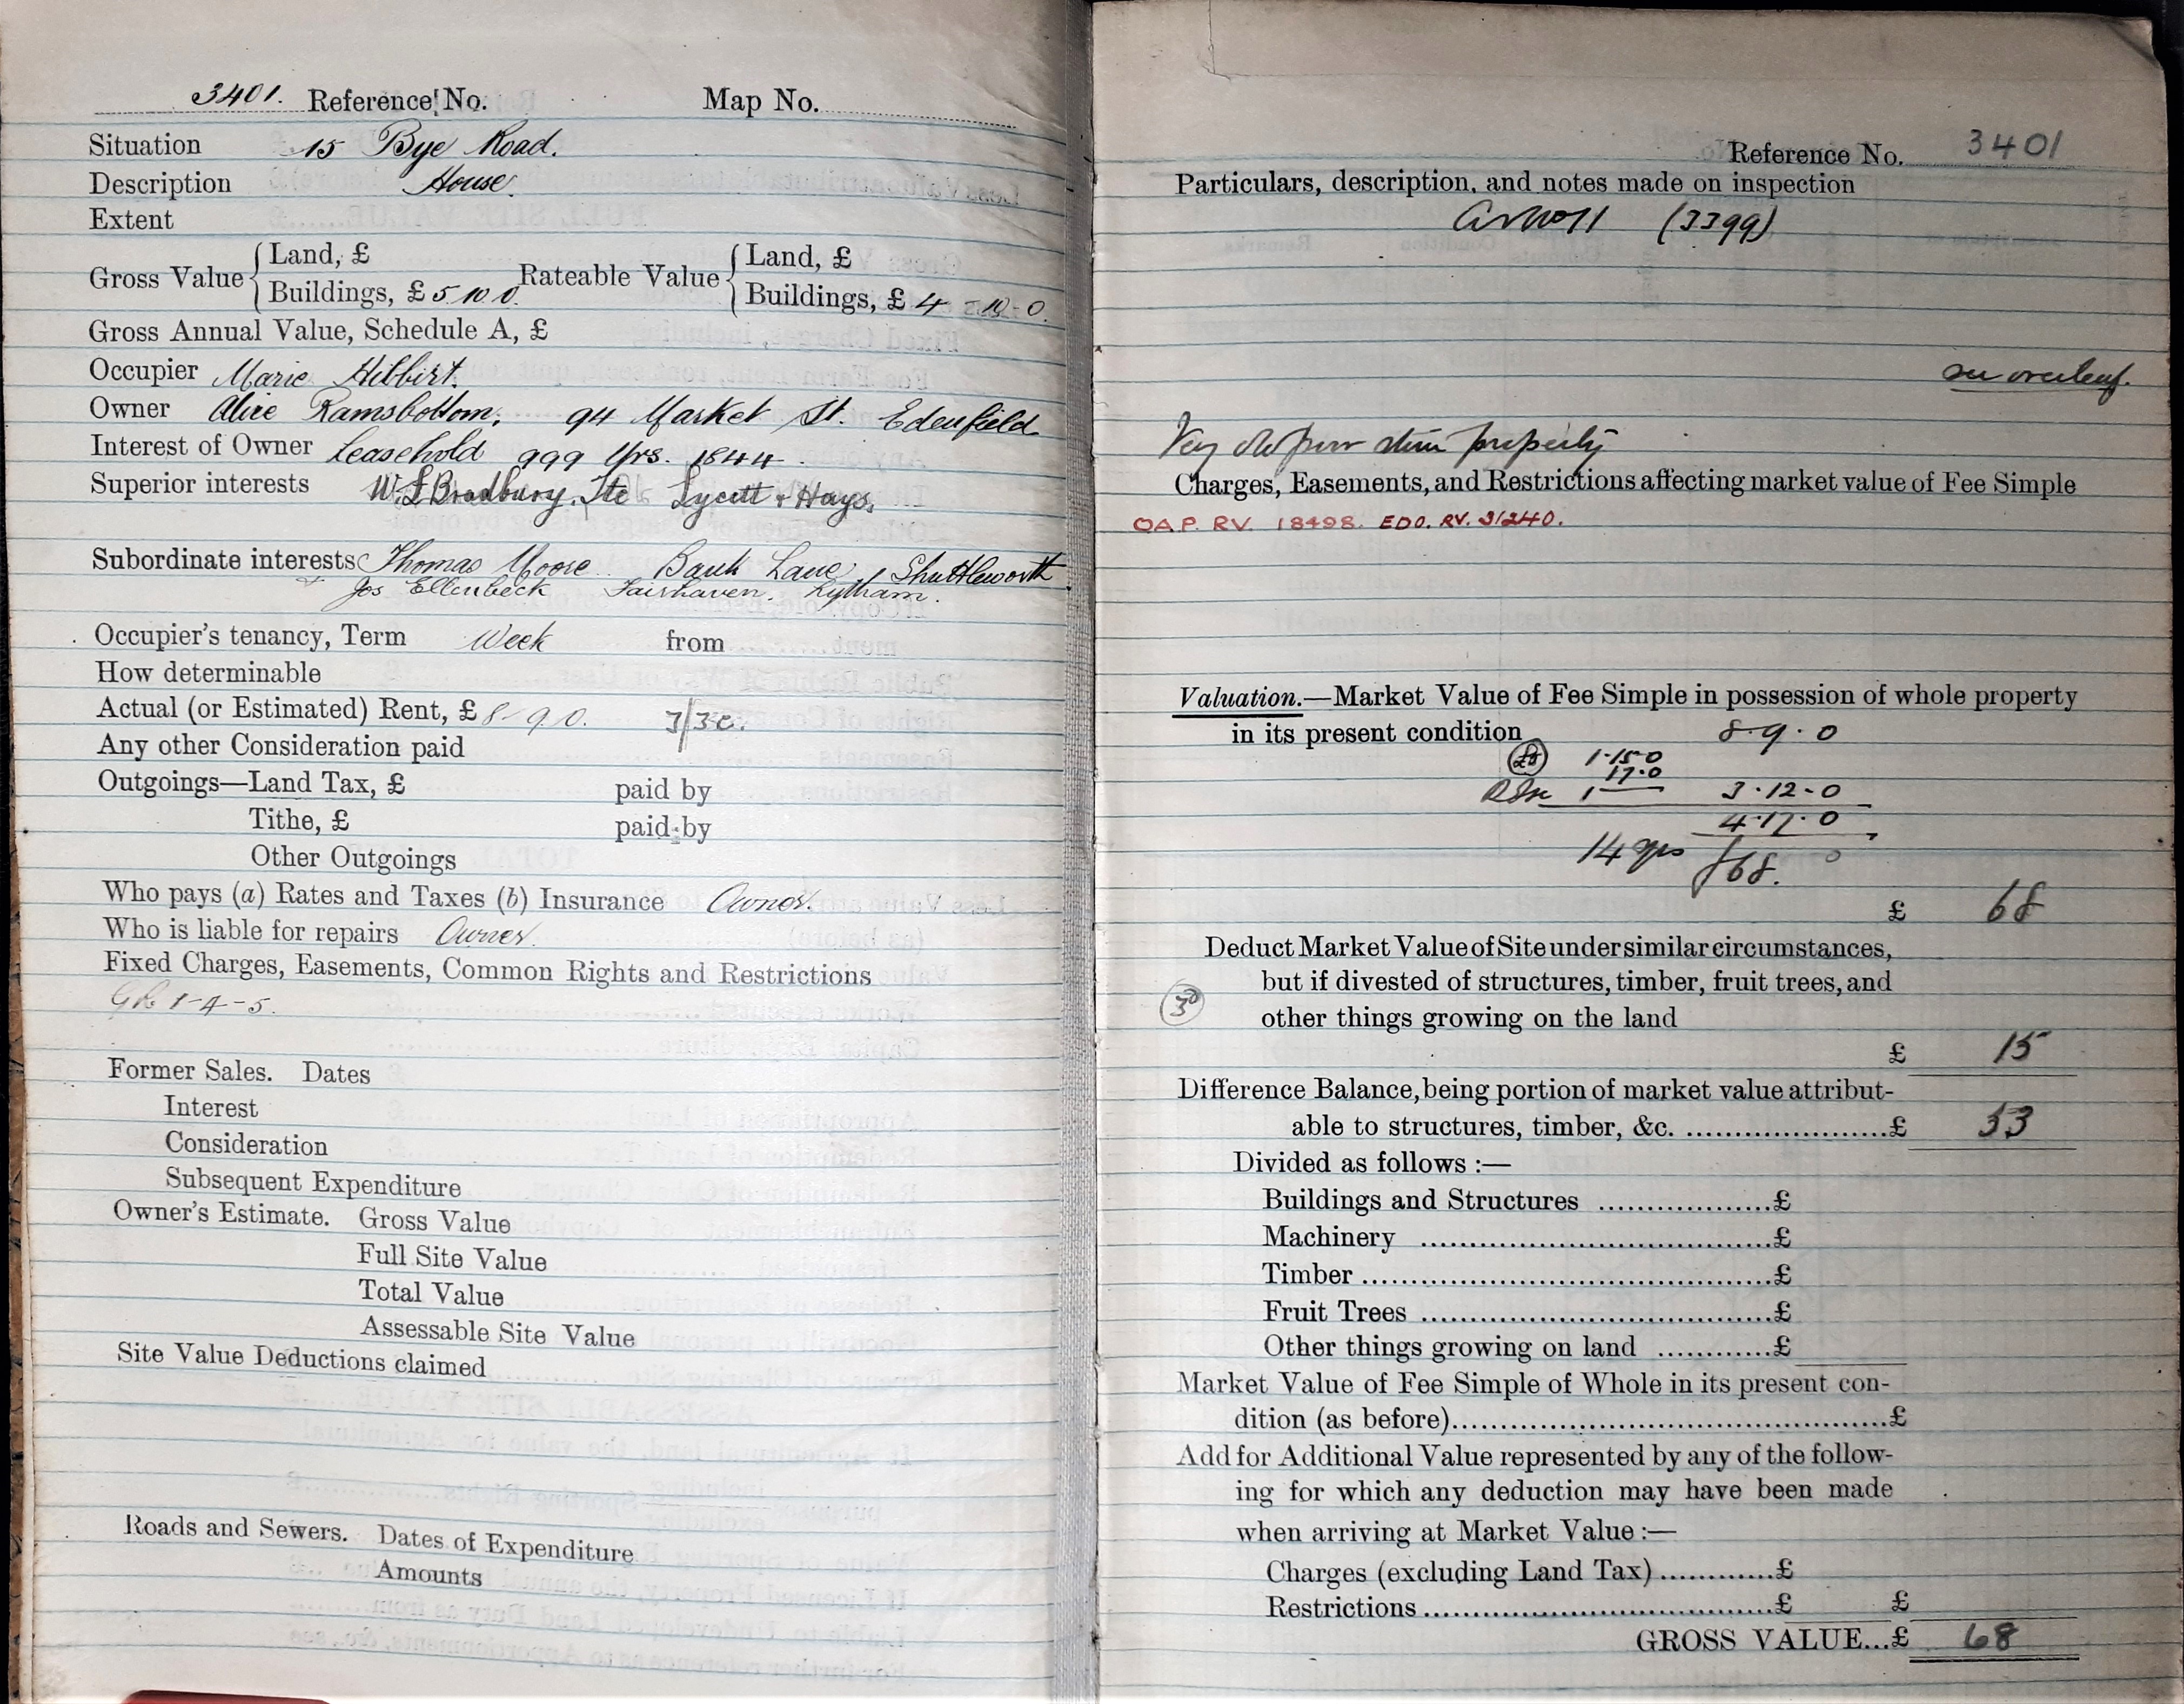 3401. Reference No. Map No.
Situation 15 Bye Road.
Description House.
Extent
Gross Value { Land, £ Rateable Value { Land, £
Buildings, £ 5 10 0. Buildings, £ 4 - 10 - 0.
Gross Annual Value, Schedule A, £
Occupier Marie Hibbirt.
Owner Alice Ramsbottom. 94 Market St. Edenfield
Interest of Owner Leasehold 999 Yrs. 1844.
Superior interests W. L Bradbury, Lycett & Hays.
Subordinate interests Thomas Moore Bank Lane, Shuttleworth
Jos Ellenbeck Fairhaven. Lytham.
Occupier's tenancy, Term Week from
How determinable
Actual (or Estimated) Rent, £ 8 - 9 0. 3/3
Any other Consideration paid
Outgoings—Land Tax, £ paid by
Tithe, £ paid by
Other Outgoings
Who pays (a) Rates and Taxes (b) Insurance Owner.
Who is liable for repairs Owner.
Fixed Charges, Easements, Common Rights and Restrictions
GR 1-4-5.
Former Sales. Dates
Interest
Consideration
Subsequent Expenditure
Owner's Estimate. Gross Value
Full Site Value
Total Value
Assessable Site Value
Site Value Deductions claimed
Roads and Sewers. Dates of Expenditure
Amounts
Reference No. 3401
Particulars, description, and notes made on inspection
(3399)
see overleaf.
Very old poor stone property
Charges, Easements, and Restrictions affecting market value of Fee Simple
OA.P. RV. 18498. EDO. RV. 31240.
Valuation.—Market Value of Fee Simple in possession of whole property
in its present condition 8.9.0
£8 1.15.0
17.0
1 3.12-0
4.17.0
14 yrs £68. 0
£ 68
Deduct Market Value of Site under similar circumstances,
but if divested of structures, timber, fruit trees, and
other things growing on the land
£ 15
Difference Balance, being portion of market value attribut-
able to structures, timber, &c. £ 53
Divided as follows :—
Buildings and Structures £
Machinery £
Timber £
Fruit Trees £
Other things growing on land £
Market Value of Fee Simple of Whole in its present con-
dition (as before) £
Add for Additional Value represented by any of the follow-
ing for which any deduction may have been made
when arriving at Market Value :—
Charges (excluding Land Tax) £
Restrictions £ £
GROSS VALUE...£ 68